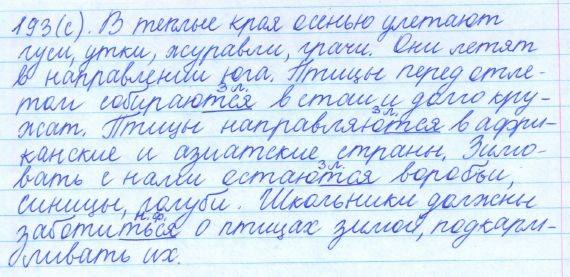 193(с). В теплые края осенью улетают
гуси, утки, журавли, грачи. Они летят
в направлении юга. Птицы перед отле-
3 л.
том собираются в стаи и долго кру-
3 л.
жат. Птицы направляются в афри-
канские и азиатские страны. Зимо-
3 л.
вать с нами остаются воробьи,
синицы, голуби. Школьники должны
н.ф.
заботиться о птицах зимой, подкарм-
ливать их.